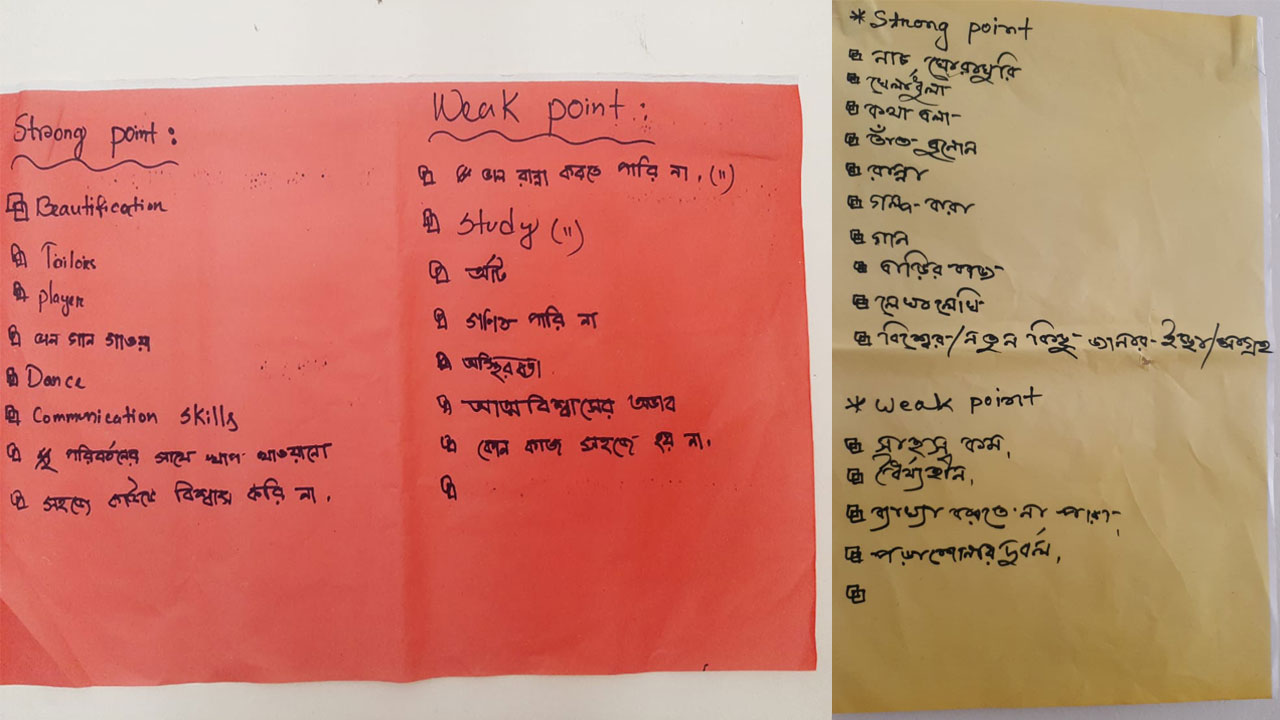 Strong point :
Beautification
Tailors
player
ভাল গান গাওয়া
Dance
Communication skills
পরিবর্তনের সাথে খাপ খাওয়ানো
সহজে কাউকে বিশ্বাস করি না.
Weak point :
ভাল রান্না করতে পারি না. (")
Study (")
আর্ট
গণিত পারি না
অস্থিরতা
আত্মবিশ্বাসের অভাব
কোন কাজ সহজে হয় না.
* Strong point
নাচ ঘোরাঘুরি
খেলাধুলা
কথা বলা
তাঁত বুনোন
রান্না
গল্প করা
গান
বাড়ির কাজ
লেখালেখি
বিশ্বের/নতুন কিছু জানার ইচ্ছা/আগ্রহ
* Weak point
সাহস কম,
ধৈর্য্যহীন,
ব্যাখ্যা করতে না পারা,
পড়াশোনায় দুর্বল,